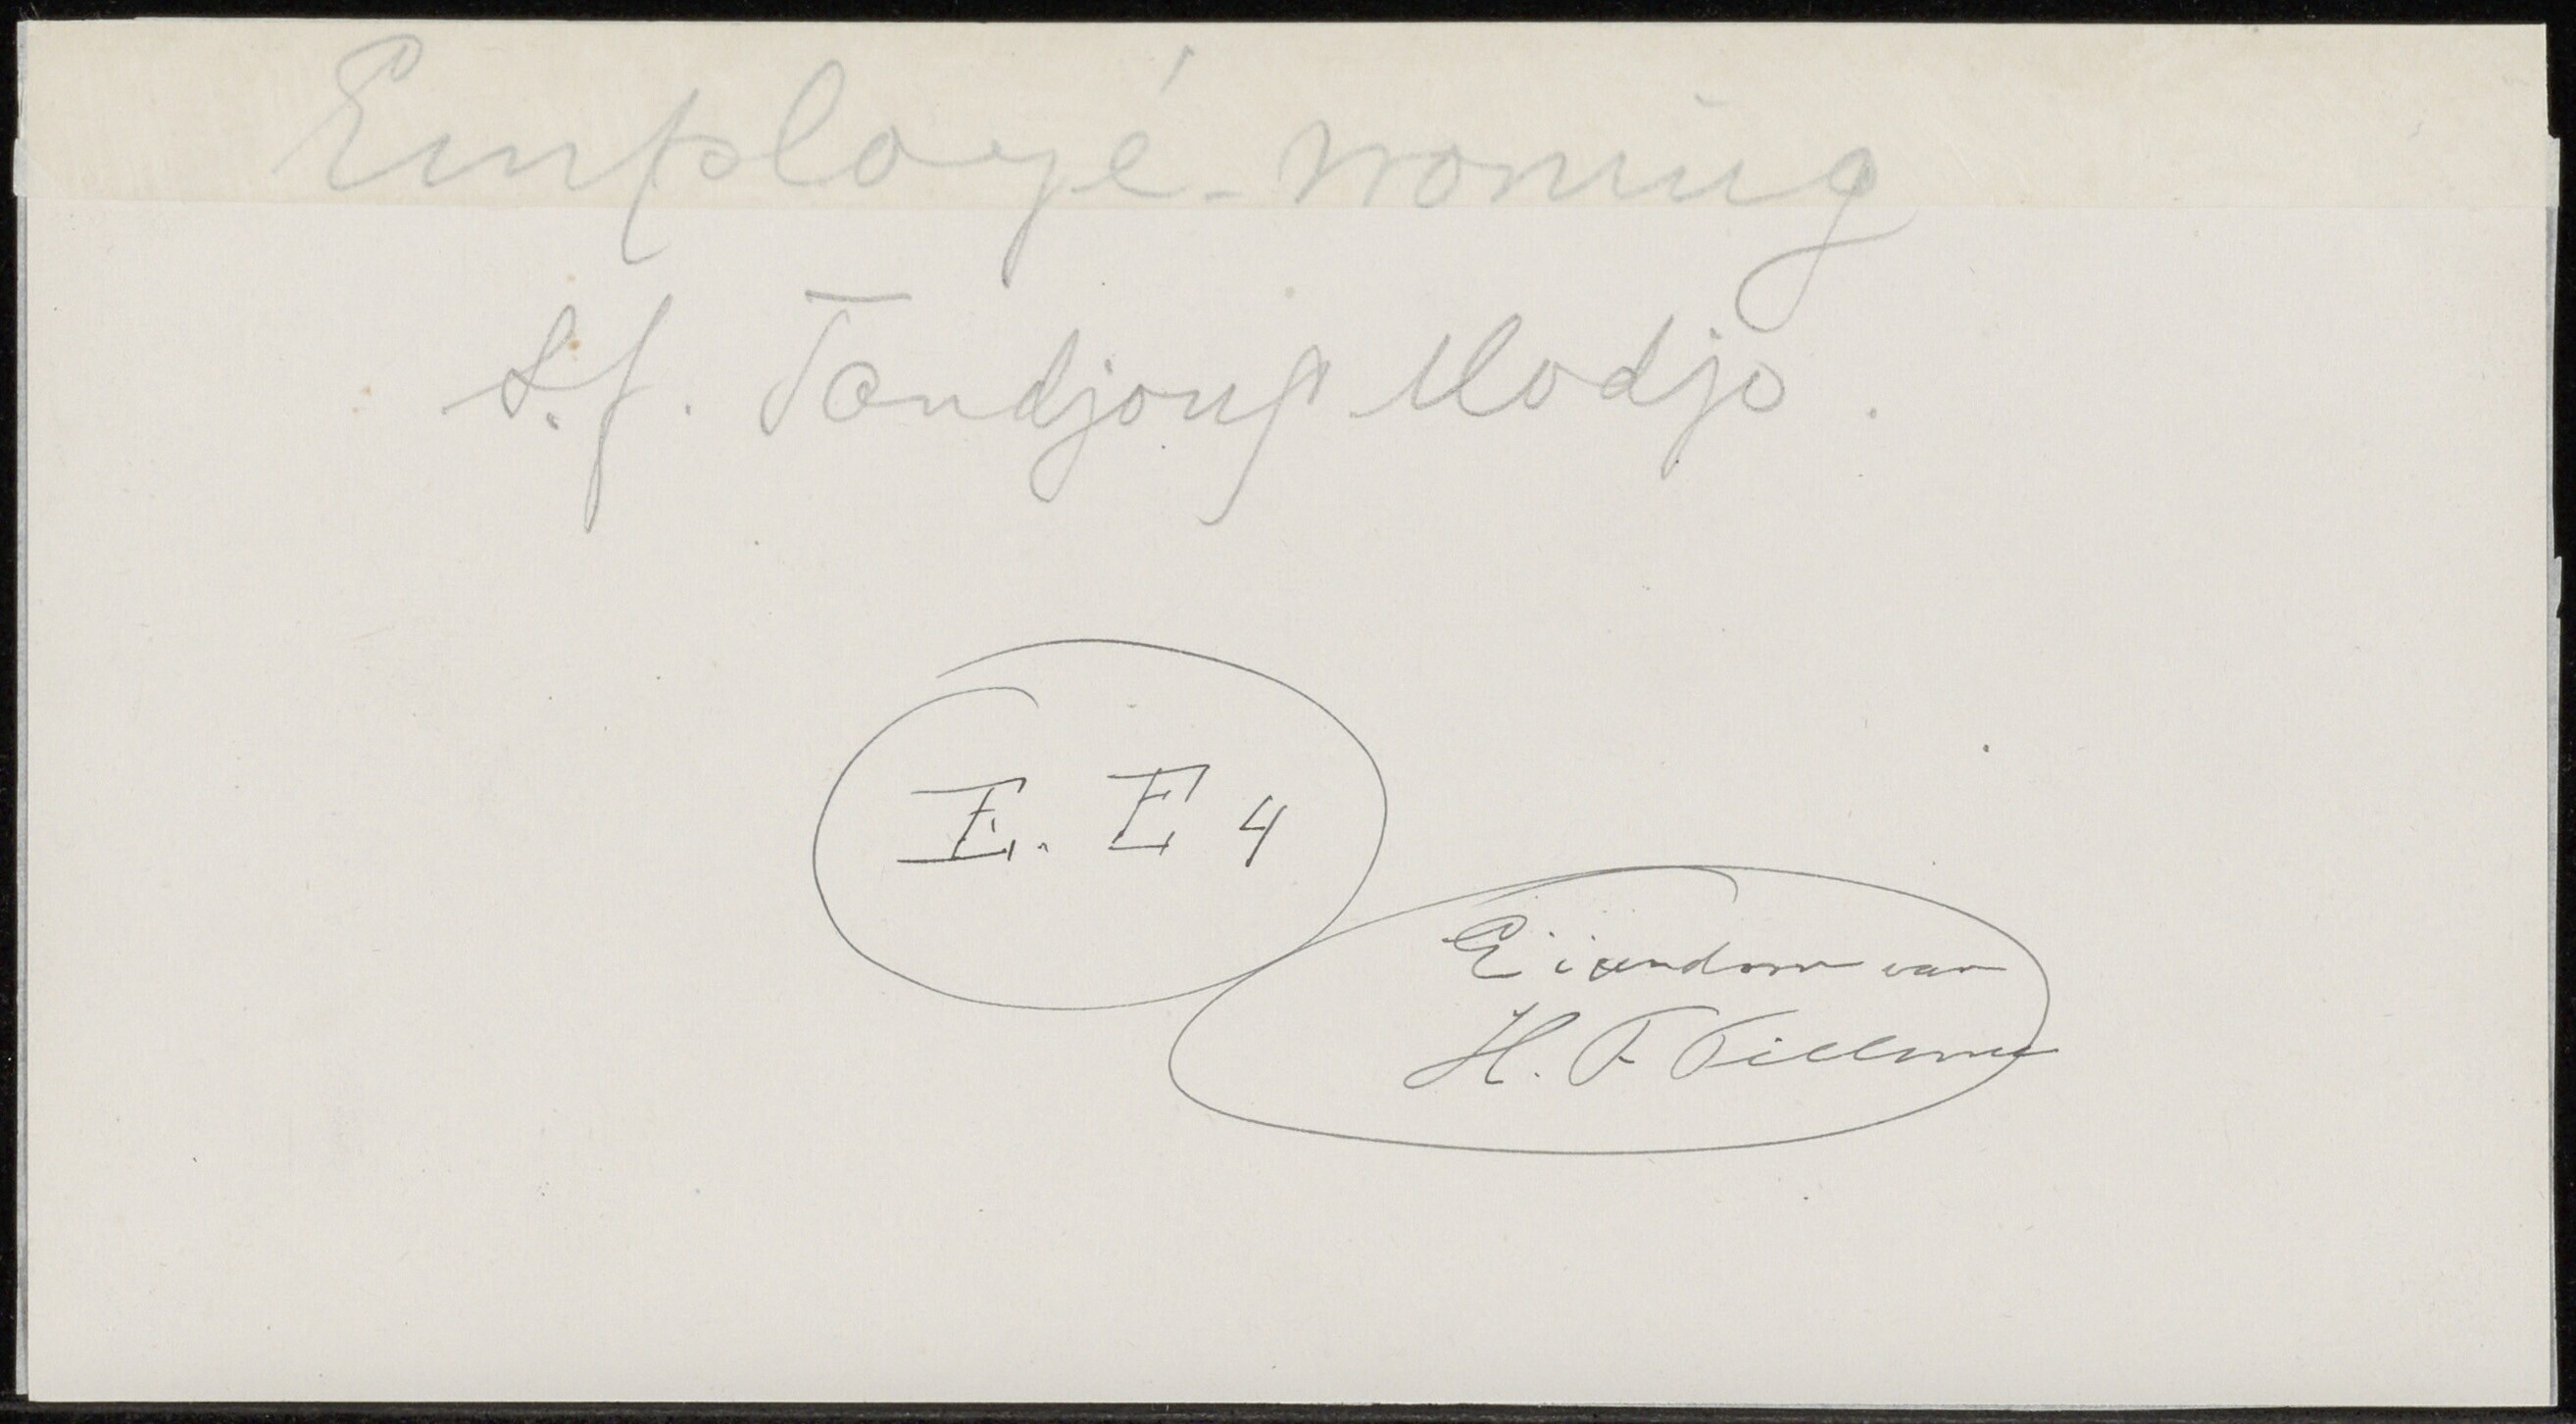 Employé-woning
S.f. Tandjong Modjo.
E. E 4
Eigendom van
H. F. Tillema